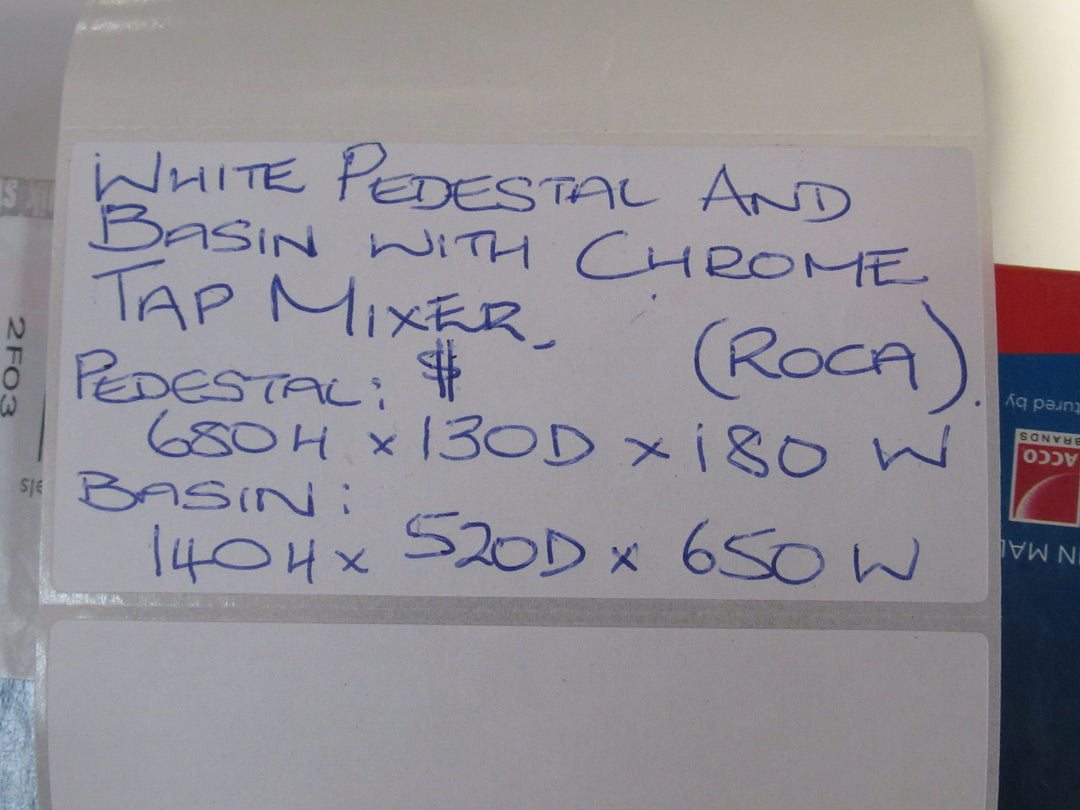 WHITE PEDESTAL AND
BASIN WITH CHROME
TAP MIXER.
(ROCA).
PEDESTAL: $
680H x 130D x 180 W
BASIN:
140H x 520D x 650 W
2F03
els
tured by
ACCO
BRANDS